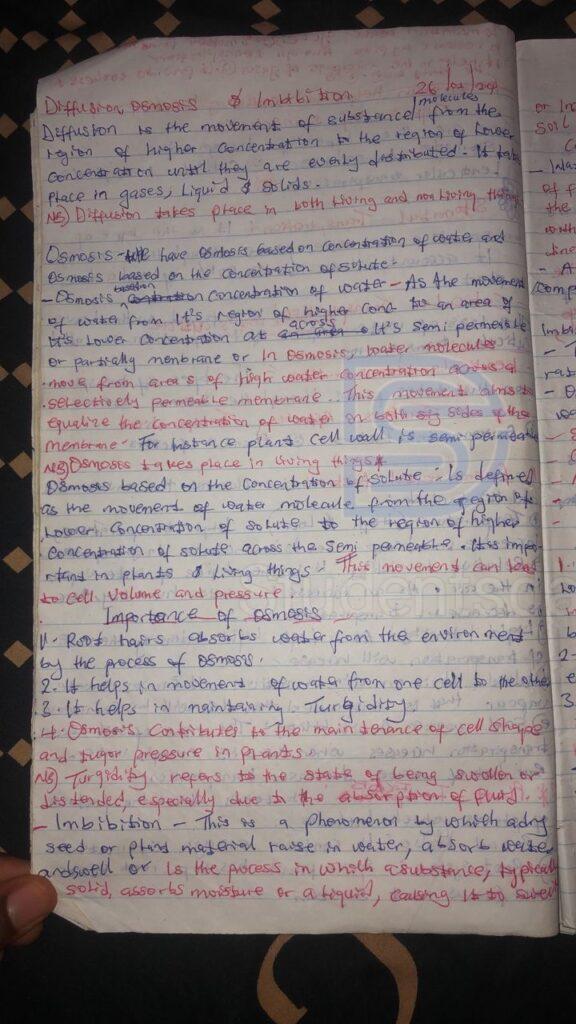 Diffusion Osmosis & Imbibition 26/02/
Diffusion is the movement of substance/molecules from the
region of higher concentration to the region of lower
concentration until they are evenly distributed. It takes
place in gases, liquid & solids.
NB) Diffusion takes place in both living and non living things
Osmosis - We have osmosis based on concentration of water and
osmosis based on the concentration of solute.
- Osmosis based on concentration of water - As the movement
of water from It's region of higher conc to an area of
It's lower concentration at across It's semi permeable
or partially menbrane or In osmosis, water molecules
move from areas of high water concentration across a
selectively permeable membrane. This movement aims to
equalize the concentration of water on both sides of the
membrane. For instance plant cell wall is semi permeable
NB) Osmosis takes place in living things*
Osmosis based on the concentration of solute: Is defined
as the movement of water molecule from the region of
lower concentration of solute to the region of higher
concentration of solute across the semi permeable. It is impor-
tant in plants & living things. This movement can lead
to cell volume and pressure.
Importance of osmosis
1. Root hairs absorbs water from the environment
by the process of osmosis.
2. It helps in movement of water from one cell to the other
3. It helps in naintaining Turgidity
4. Osmosis contributes to the maintenance of cell shape
and turgor pressure in plants
NB) Turgidity refers to the state of being swollen or
distended, especially due to the absorption of fluid.
- Imbibition - This is a phenomenon by which a dry
seed or plant material raise in water, absorb water
and swell or Is the process in which a substance, typically
solid, absorbs moisture or a liquid, causing it to swell
or In
soil
- Wa
of f
the
with
- A
Imbi
rat
1.
2-
3.